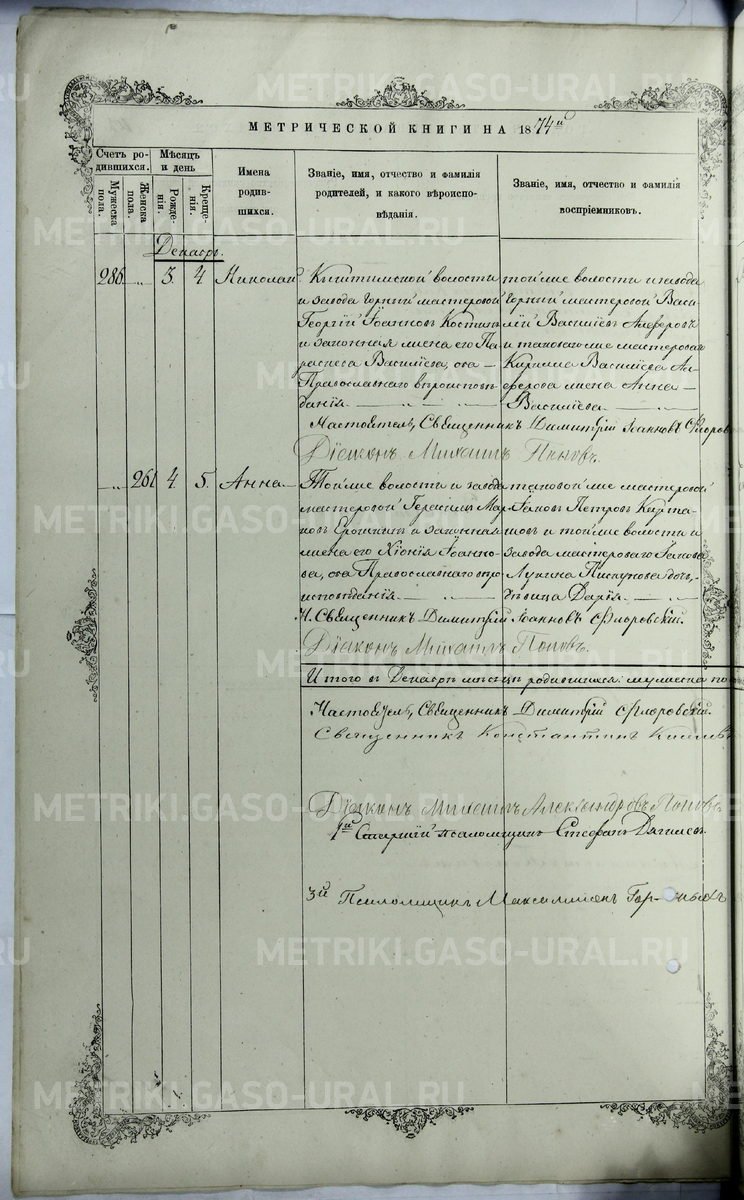 МЕТРИЧЕСКОЙ КНИГИ НА 1874й
Счетъ родившихся.
Мужеска пола.
Женска пола.
Мѣсяцъ и день
Рожденія.
Крещенія.
Имена родившихся.
Званіе, имя, отчество и фамилія родителей, и какого вѣроисповѣданія.
Званіе, имя, отчество и фамилія воспріемниковъ.
Декабрь.
286. „ 3. 4 Николай
Кыштымской волости
и завода Горный мастеровой
Георгій Іоанновъ Костинъ
и законная жена его Па-
раскева Васильева, оба —
Православнаго вѣроиспов-
данія.
той же волости и завода
Горный мастеровой Васи-
лій Васильевъ Алферовъ
и таковаго же мастероваго
Кирилла Васильева Ал-
ферова жена Анна —
Васильева.
Настоятель, Священникъ Димитрій Іоанновъ Флоров
Діаконъ Михаилъ Поповъ.
„ 261 4. 5. Анна.
Той же волости и завода
мастеровой Герасимъ Мар-
ковъ и законная
жена его Хіонія Іоанно-
ва, оба Православнаго вѣро-
исповѣданія.
таковой же мастеровой
Іаковъ Петровъ
и той же волости и
завода мастероваго Іакова
Лукина Пискунова дочь,
дѣвица Дарія.
Н. Священникъ Димитрій Іоанновъ Флоровскій.
Діаконъ Михаилъ Поповъ.
Итого въ Декабрѣ мѣсяцѣ родившихся: мужеска по
Настоятель, Священникъ Димитрій Флоровскій.
Священникъ Константинъ
Діаконъ Михаилъ Александровъ Поповъ
1й Старшій псаломщикъ Стефанъ Дягилевъ.
3й Псаломщикъ Максимиліанъ
METRIKI.GASO-URAL.RU